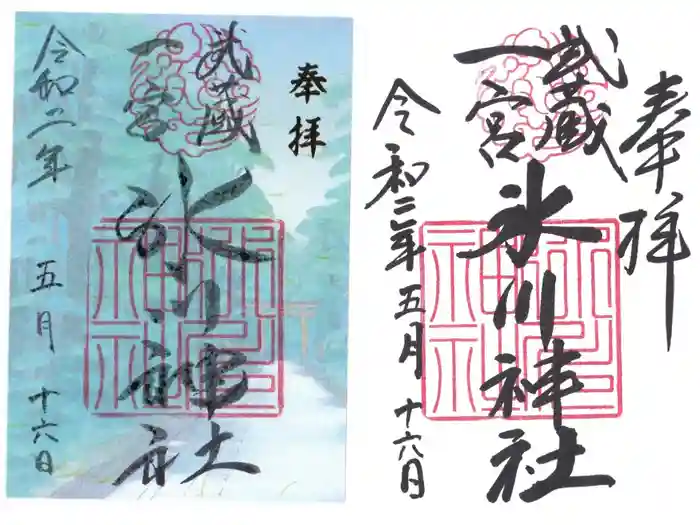 奉拝
武蔵
一宮
氷川神社
令和二年 五月 十六日
奉拝
武蔵
一宮
氷川神社
令和三年 五月 十六日